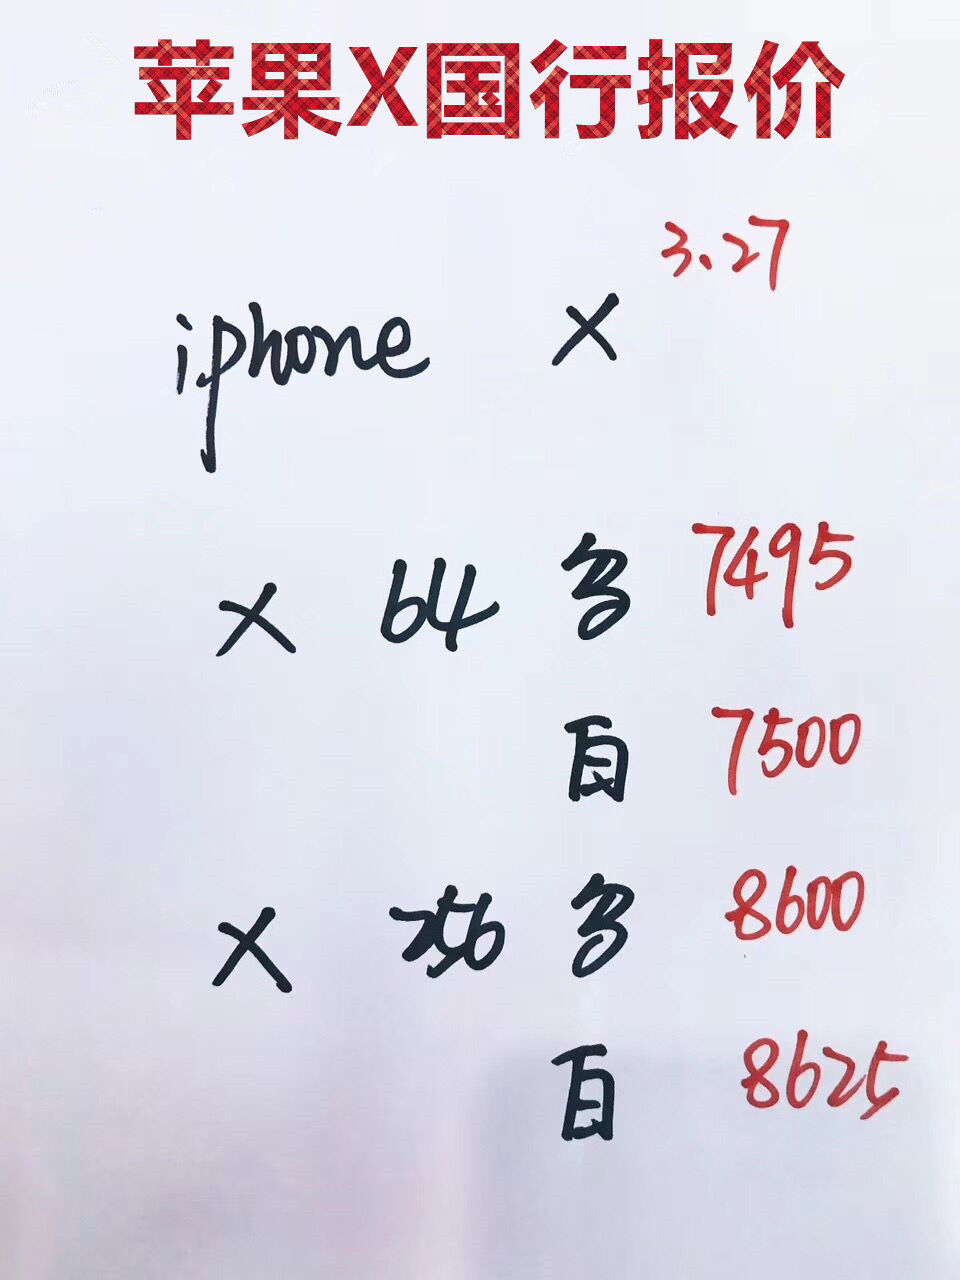 苹果X国行报价
3.27
iphone X
X 64 多 7495
百 7500
X 256 多 8600
百 8625